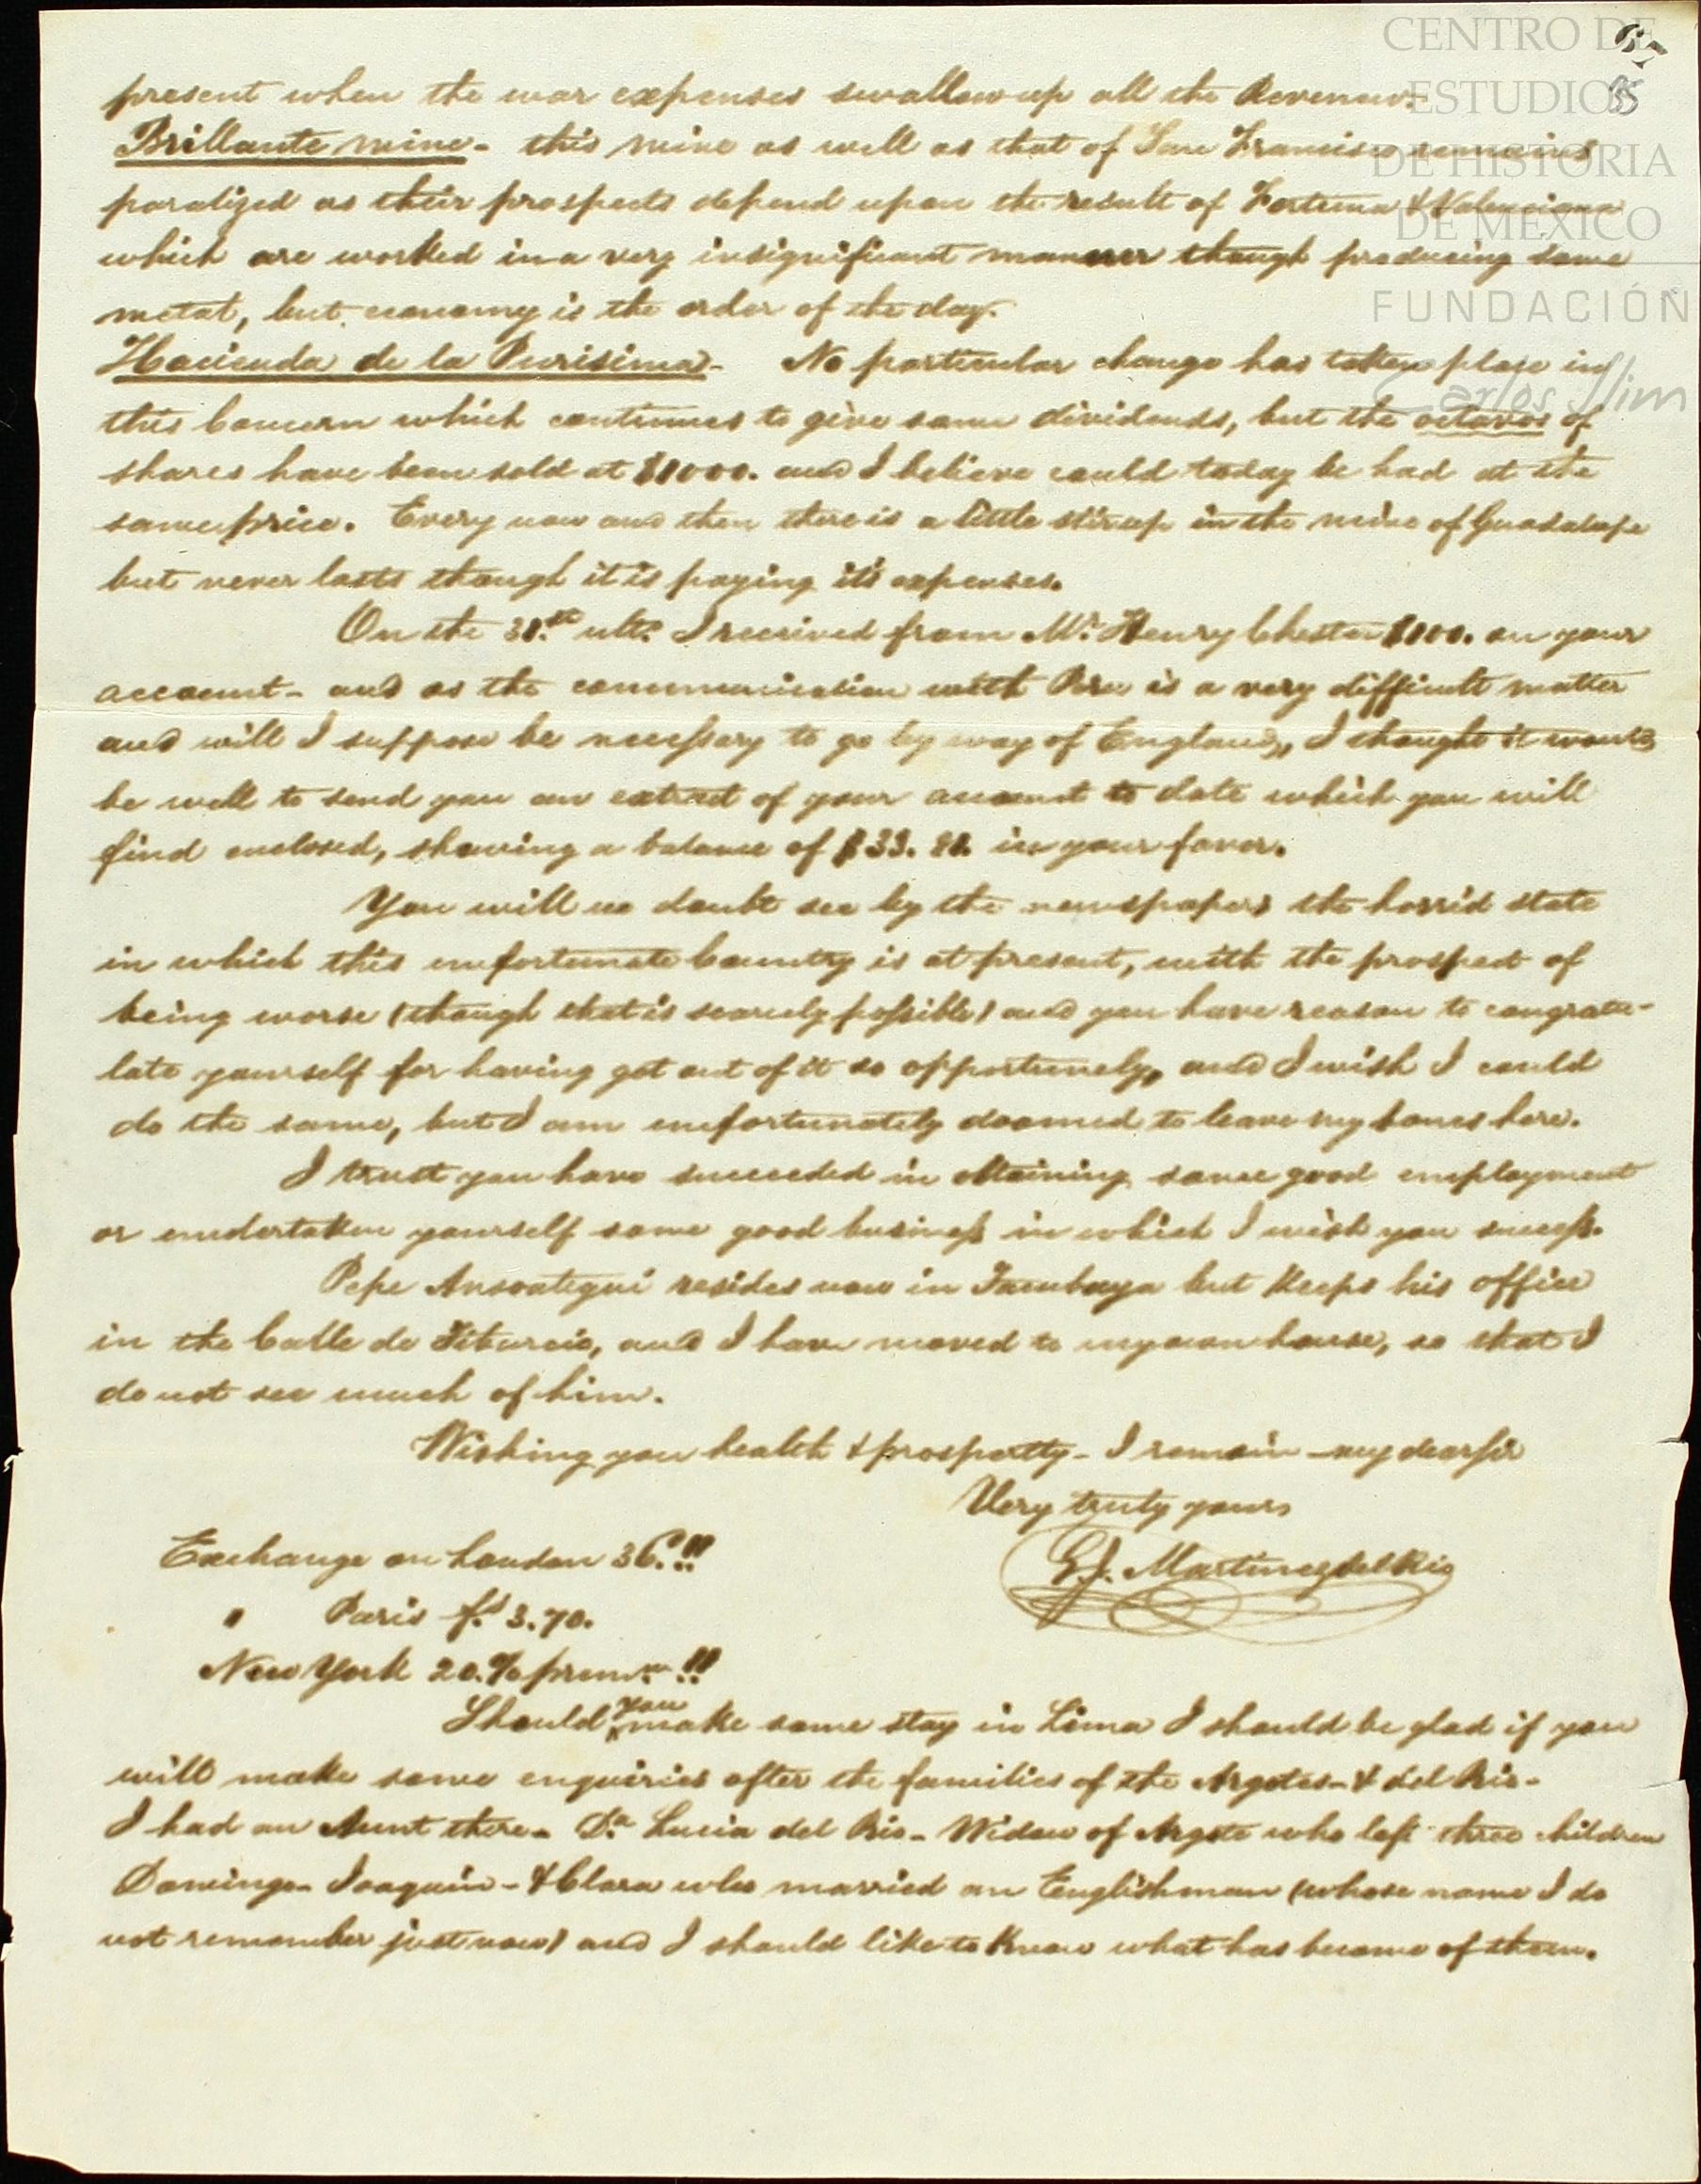 CENTRO DE
ESTUDIOS
DE HISTORIA
DE MÉXICO
FUNDACIÓN
Carlos Slim
present when the war expenses swallow up all the Revenue.
Brillante mine - this mine as well as that of San Francisco remains
paralized as their prospects depend upon the result of Fortuna & Valenciana
which are worked in a very insignificant manner though producing some
metal, but economy is the order of the day.
Hacienda de la Purisima - No particular change has taken place in
this Concern which continues to give some dividends, but the octavos of
shares have been sold at $1000. and I believe could today be had at the
same price. Every now and then there is a little stir up in the mine of Guadalupe
but never lasts though it is paying its expenses.
On the ulto. I received from Mr. Henry Chester on your
account - and as the communication with Peru is a very difficult matter
and will I suppose be necessary to go by way of England, I thought it would
be well to send you an extract of your account to date which you will
find enclosed, showing a balance of $33. in your favor.
You will no doubt see by the newspapers the horrid state
in which this unfortunate Country is at present, with the prospect of
being worse (though that is scarcely possible) and you have reason to congratu-
late yourself for having got out of it so opportunely, and I wish I could
do the same, but I am unfortunately doomed to leave my bones here.
I trust you have succeeded in obtaining some good employment
or undertaken yourself some good business in which I wish you success.
Pepe Ansoategui resides now in Tacubaya but keeps his office
in the Calle de Tiburcio, and I have moved to my own house, so that I
do not see much of him.
Wishing you health & prosperity - I remain - my dear sir
Very truly yours
G.J. Martinez del Rio
Exchange on London 36. !!
" Paris fs. 3.70.
New York 20.% prem. !!
Should you make some stay in Lima I should be glad if you
will make some enquiries after the families of the Argotes - & del Rio -
I had an Aunt there - Da. Lucia del Rio - Widow of Argote who left three children
Domingo - Joaquin - & Clara who married an Englishman (whose name I do
not remember just now) and I should like to know what has become of them.